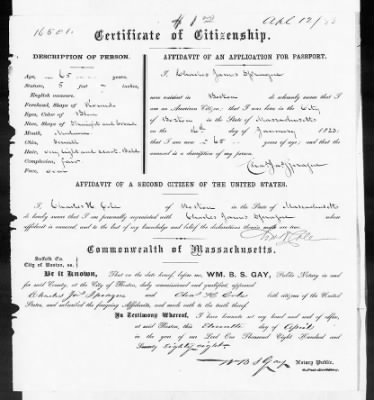 16508.
Certificate of Citizenship.
DESCRIPTION OF PERSON.
Age, 65 years,
Stature, 5 feet 7 inches,
English measure.
Forehead, Shape of
Eyes, Color of Blue
Nose, Shape of Straight and broad
Mouth, Medium
Chin, Small
Hair,
Complexion, fair
Face, oval
AFFIDAVIT OF AN APPLICATION FOR PASSPORT.
I, Charles James Sprague
now resident in Boston do solemnly swear that I
am an American Citizen; that I was born in the City
of Boston in the State of Massachusetts
on the 16th day of January 1823:
that I am now 65 years of age; and that the
annexed is a description of my person.
Chas Jas Sprague
AFFIDAVIT OF A SECOND CITIZEN OF THE UNITED STATES.
I, Charles H. Cole of Boston in the State of Massachusetts
do hereby swear that I am personally acquainted with Charles James Sprague whose
affidavit is annexed and to the best of my knowledge and belief the declarations therein made are true.
Commonwealth of Massachusetts.
Suffolk Co.
City of Boston, ss.
Be it Known, That on the date hereof before me, WM. B. S. GAY, Public Notary in and
for said County, at the City of Boston, duly commissioned and qualified, appeared
Charles Jas Sprague and Chas. H. Cole both citizens of the United
States, and subscribed the foregoing Affidavits, and made oath to the truth thereof.
In Testimony Whereof, I have hereunto set my hand and seal of office,
at said Boston, this Eleventh day of April
in the year of our Lord One Thousand Eight Hundred and
Seventy eighty-eight
W B S Gay Notary Public.